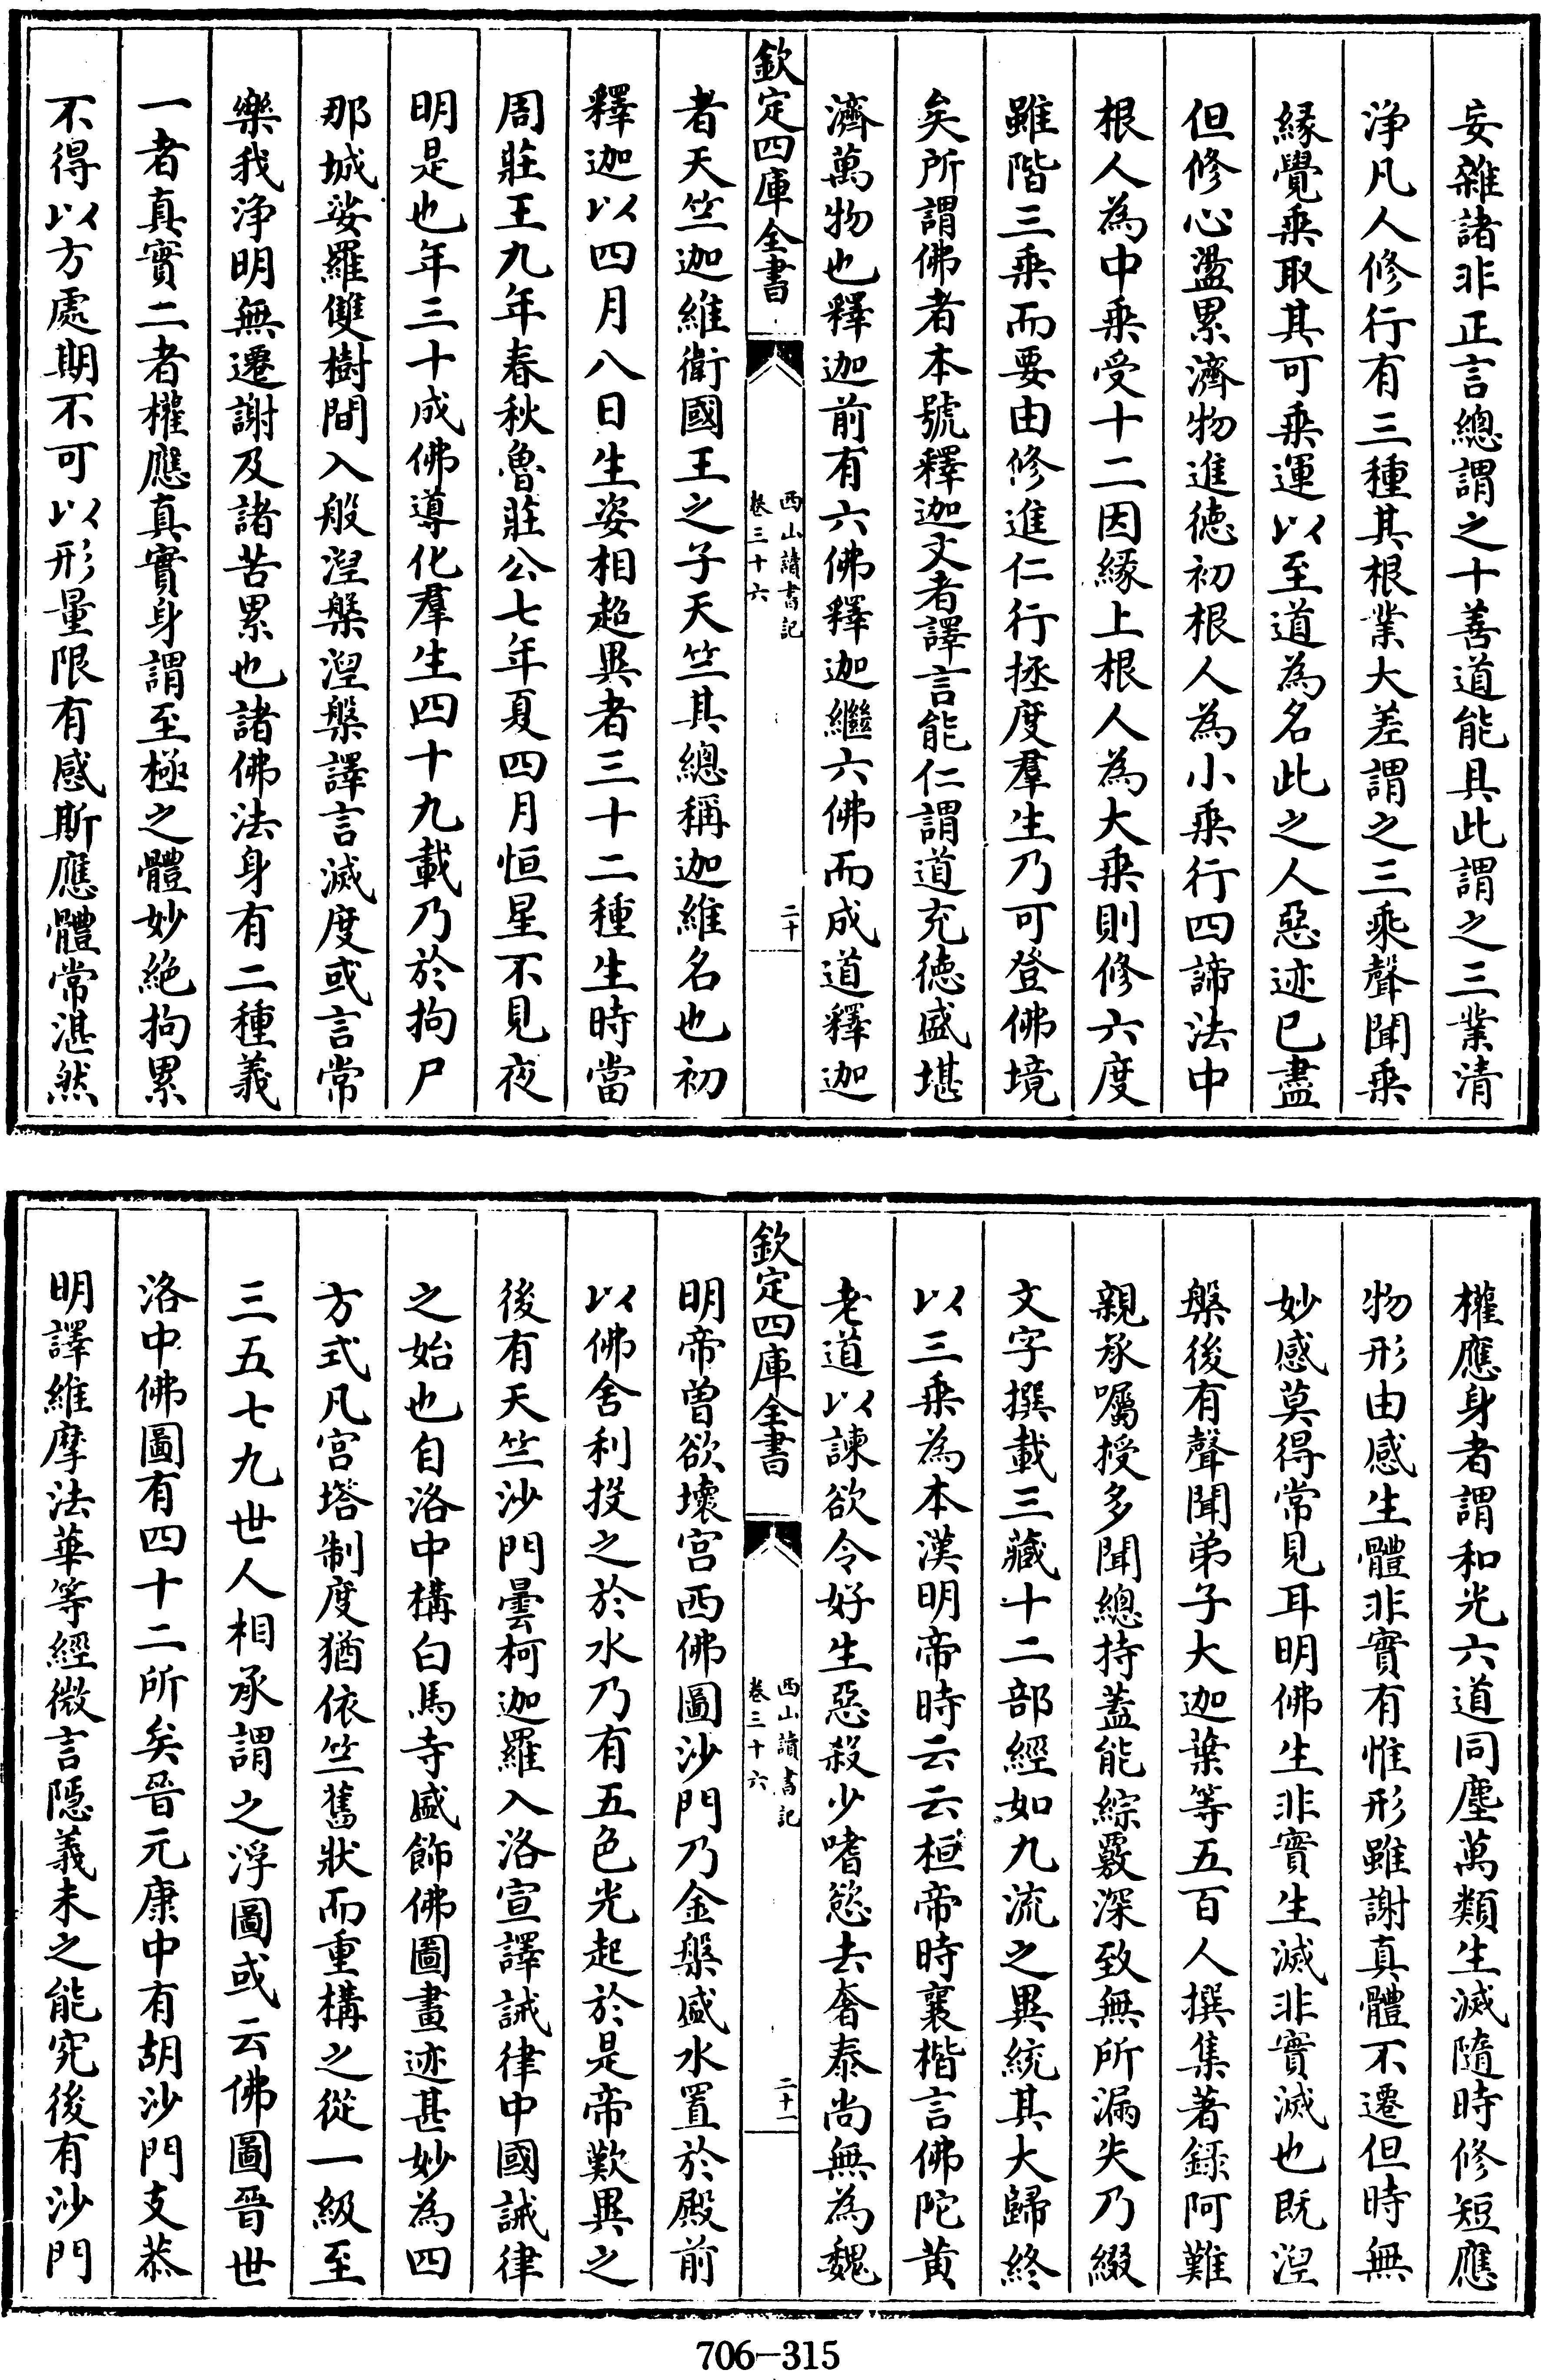 妄雜諸非正言總謂之十善道能具此謂之三業清
浄凡人修行有三種其根業大差謂之三乘聲聞乗
緣覺乗取其可乗運以至道為名此之人惡迹已盡
但修心盪累濟物進徳初根人為小乗行四諦法中
根人為中乗受十二因緣上根人為大乗則修六度
雖階三乗而要由修進仁行拯度羣生乃可登佛境
矣所謂佛者本號釋迦文者譯言能仁謂道充徳盛堪
濟萬物也釋迦前有六佛釋迦繼六佛而成道釋迦
欽定四庫全書
西山讀書記
卷三十六
二十
者天竺迦維衛國王之子天竺其總稱迦維名也初
釋迦以四月八日生姿相超異者三十二種生時當
周莊王九年春秋魯莊公七年夏四月恒星不見夜
明是也年三十成佛導化羣生四十九載乃於拘尸
那城娑羅雙樹間入般湼槃湼槃譯言滅度或言常
樂我浄明無遷謝及諸苦累也諸佛法身有二種義
一者真實二者權應真實身謂至極之體妙絶拘累
不得以方處期不可以形量限有感斯應體常湛然
權應身者謂和光六道同塵萬類生滅隨時修短應
物形由感生體非實有惟形雖謝真體不遷但時無
妙感莫得常見耳明佛生非實生滅非實滅也既湼
槃後有聲聞弟子大迦葉等五百人撰集著録阿難
親承囑授多聞總持蓋能綜覈深致無所漏失乃綴
文字撰載三藏十二部經如九流之異統其大歸終
以三乗為本漢明帝時云云桓帝時襄楷言佛陀黄
老道以諫欲令好生惡殺少嗜慾去奢泰尚無為魏
欽定四庫全書
西山讀書記
卷三十六
二十一
明帝曽欲壞宫西佛圖沙門乃金槃盛水置於殿前
以佛舍利投之於水乃有五色光起於是帝歎異之
後有天竺沙門曇柯迦羅入洛宣譯誡律中國誡律
之始也自洛中構白馬寺盛飾佛圖畫迹甚妙為四
方式凡宫塔制度猶依竺舊狀而重構之從一級至
三五七九世人相承謂之浮圖或云佛圖晉世
洛中佛圖有四十二所矣晉元康中有胡沙門支恭
明譯維摩法華等經微言隱義未之能究後有沙門
706-315